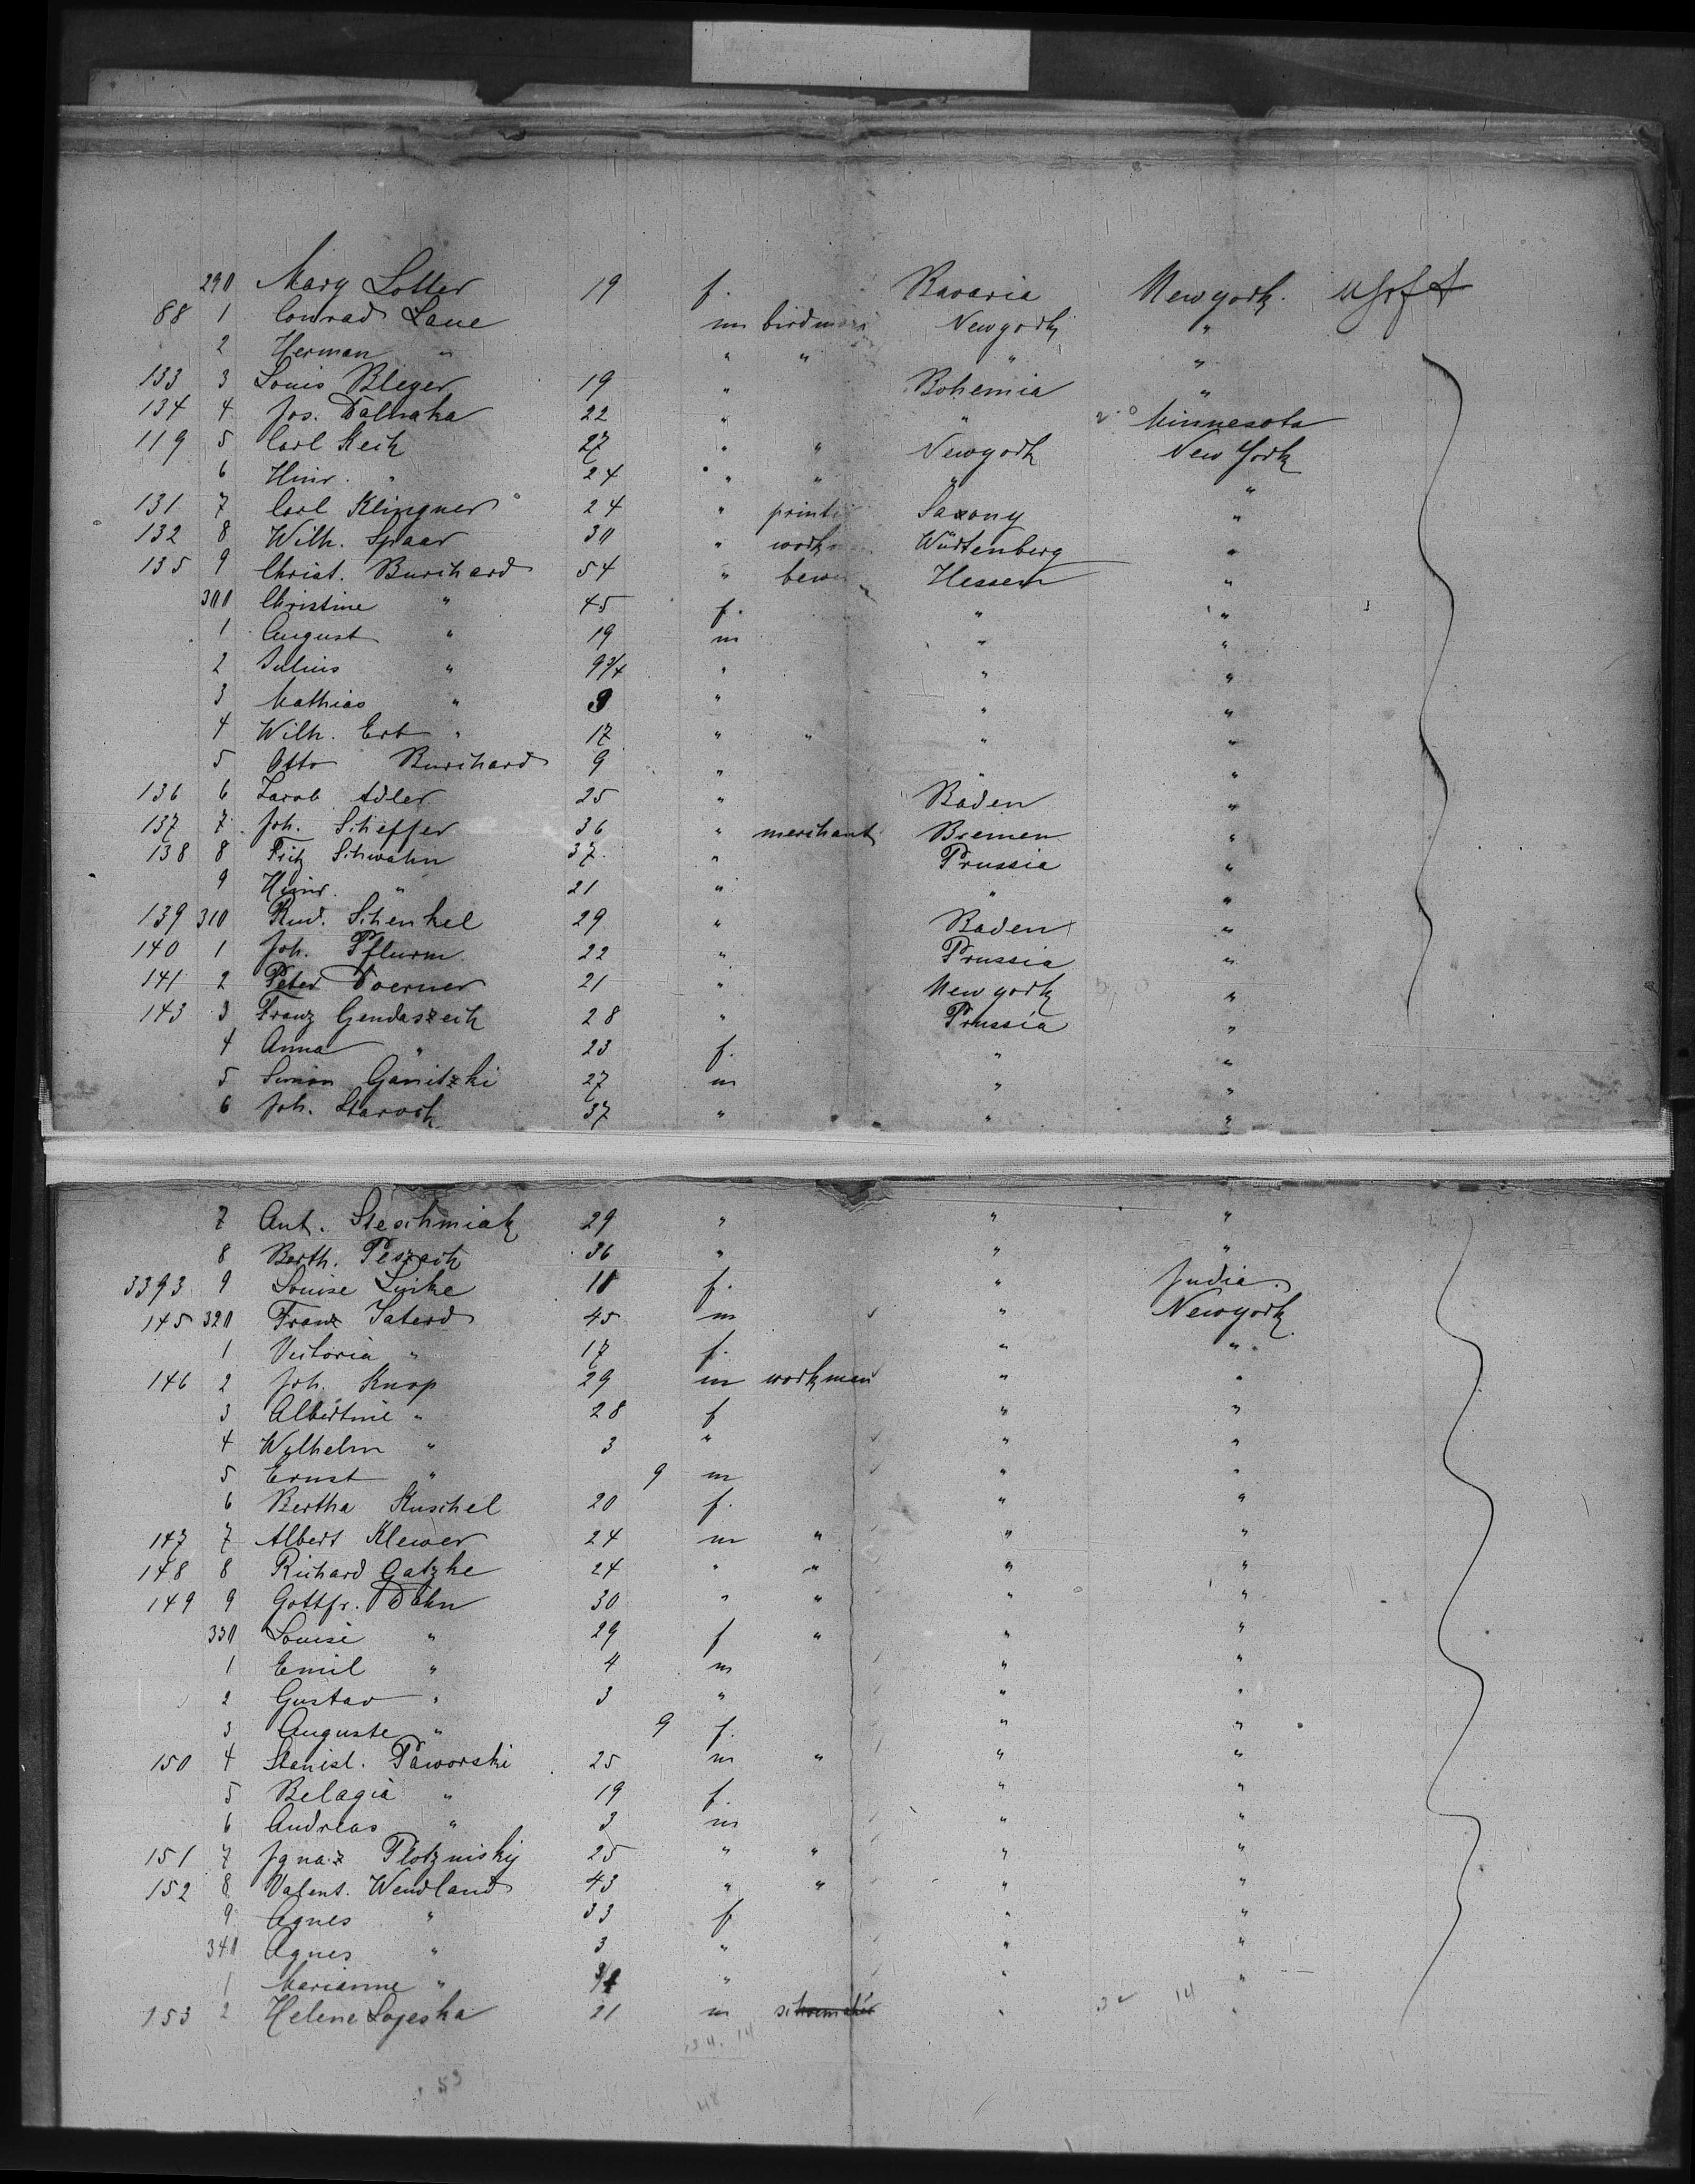 290 Mary Lotter 19 f. Bavaria Newyork.
88 1 Conrad Laue m Newyork "
2 Herman " " " " "
133 3 Louis Bleyer 19 " Bohemia "
134 4 Jos. 22 " " Minnesota
119 5 Carl Keck 27 " " Newyork New York
6 Hinr. " 24 " " " "
131 7 Carl Klingner 24 " Saxony "
132 8 Wilh. Spaar 30 " Würtenberg "
135 9 Christ. Burchard 54 " Hessen "
300 Christine " 45 f. " "
1 August " 19 m " "
2 Julius " 9 3/4 " " "
3 Mathias " 9 " " "
4 Wilh. Erb " 17 " " " "
5 Otto Burchard 9 " " "
136 6 Jacob Adler 25 " Baden "
137 7 Joh. Scheffer 36 " merchant Bremen "
138 8 Fritz Schwahn 37 " Prussia "
9 Heinr. " 21 " " "
139 310 Rud. Schenkel 29 " Baden "
140 1 Joh. Pflurm 22 " Prussia "
141 2 Peter Doerner 21 " New york "
143 3 Franz Gendaszeck 28 " Prussia "
4 Anna " 23 f. " "
5 Simon Ganitzki 27 m " "
6 Joh. Starock 37 " " "
7 Ant. Steschmiak 29 " " "
8 Berth. Peszeck 36 " " "
3393 9 Louise Linke 18 f. " India.
145 320 Franz Saterd 45 m " Newyork
1 Victoria " 17 f. " "
146 2 Joh. Knop 29 m workman " "
3 Albertine " 28 f " "
4 Wilhelm " 3 " " "
5 Ernst " 9 m " "
6 Bertha Kuschel 20 f. " "
147 7 Albert Klewer 24 m " " "
148 8 Richard Gatzke 24 " " " "
149 9 Gottfr. Dehn 30 " " " "
330 Louise " 29 f " " "
1 Emil " 4 m " "
2 Gustav " 3 " " "
3 Auguste " 9 f. " "
150 4 Stanisl. Paworski 25 m " " "
5 Belagia " 19 f. " "
6 Andreas " 3 m " "
151 7 Ignaz Plotzniskij 25 " " " "
152 8 Valent. Wendland 43 " " " "
9 Agnes " 33 f " "
340 Agnes " 3 " " "
1 Marianne " 3/4 " " "
153 2 Helene Lojeska 21 m schoemaker " "